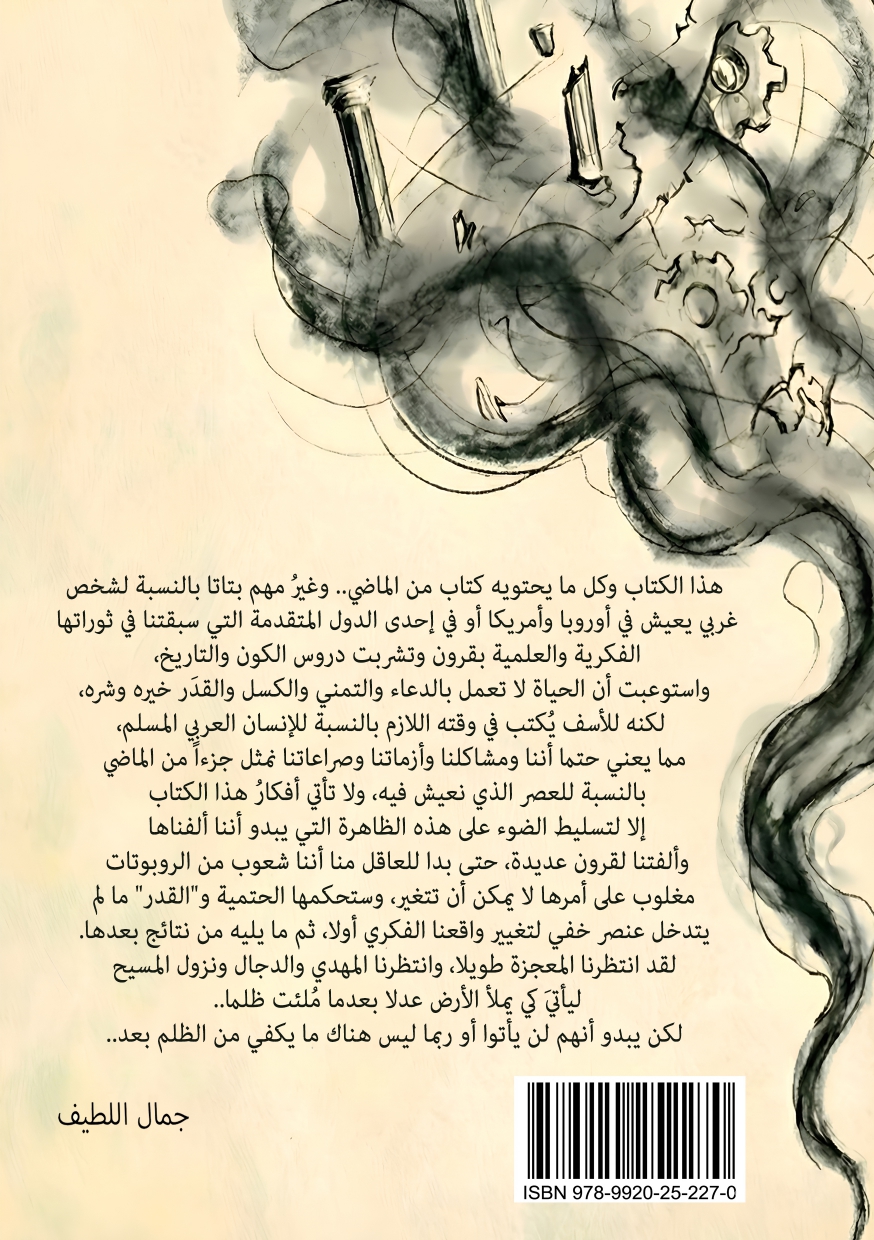 هذا الكتاب وكل ما يحتويه كتاب من الماضي.. وغيرُ مهم بتاتا بالنسبة لشخص
غربي يعيش في أوروبا وأمريكا أو في إحدى الدول المتقدمة التي سبقتنا في ثوراتها
الفكرية والعلمية بقرون وتشربت دروس الكون والتاريخ،
واستوعبت أن الحياة لا تعمل بالدعاء والتمني والكسل والقدَر خيره وشره،
لكنه للأسف يُكتب في وقته اللازم بالنسبة للإنسان العربي المسلم،
مما يعني حتما أننا ومشاكلنا وأزماتنا وصراعاتنا نمثل جزءاً من الماضي
بالنسبة للعصر الذي نعيش فيه، ولا تأتي أفكارُ هذا الكتاب
إلا لتسليط الضوء على هذه الظاهرة التي يبدو أننا ألفناها
وألفتنا لقرون عديدة، حتى بدا للعاقل منا أننا شعوب من الروبوتات
مغلوب على أمرها لا يمكن أن تتغير، وستحكمها الحتمية و"القدر" ما لم
يتدخل عنصر خفي لتغيير واقعنا الفكري أولا، ثم ما يليه من نتائج بعدها.
لقد انتظرنا المعجزة طويلا، وانتظرنا المهدي والدجال ونزول المسيح
ليأتيَ كي يملأ الأرض عدلا بعدما مُلئت ظلما..
لكن يبدو أنهم لن يأتوا أو ربما ليس هناك ما يكفي من الظلم بعد..
جمال اللطيف
ISBN 978-9920-25-227-0